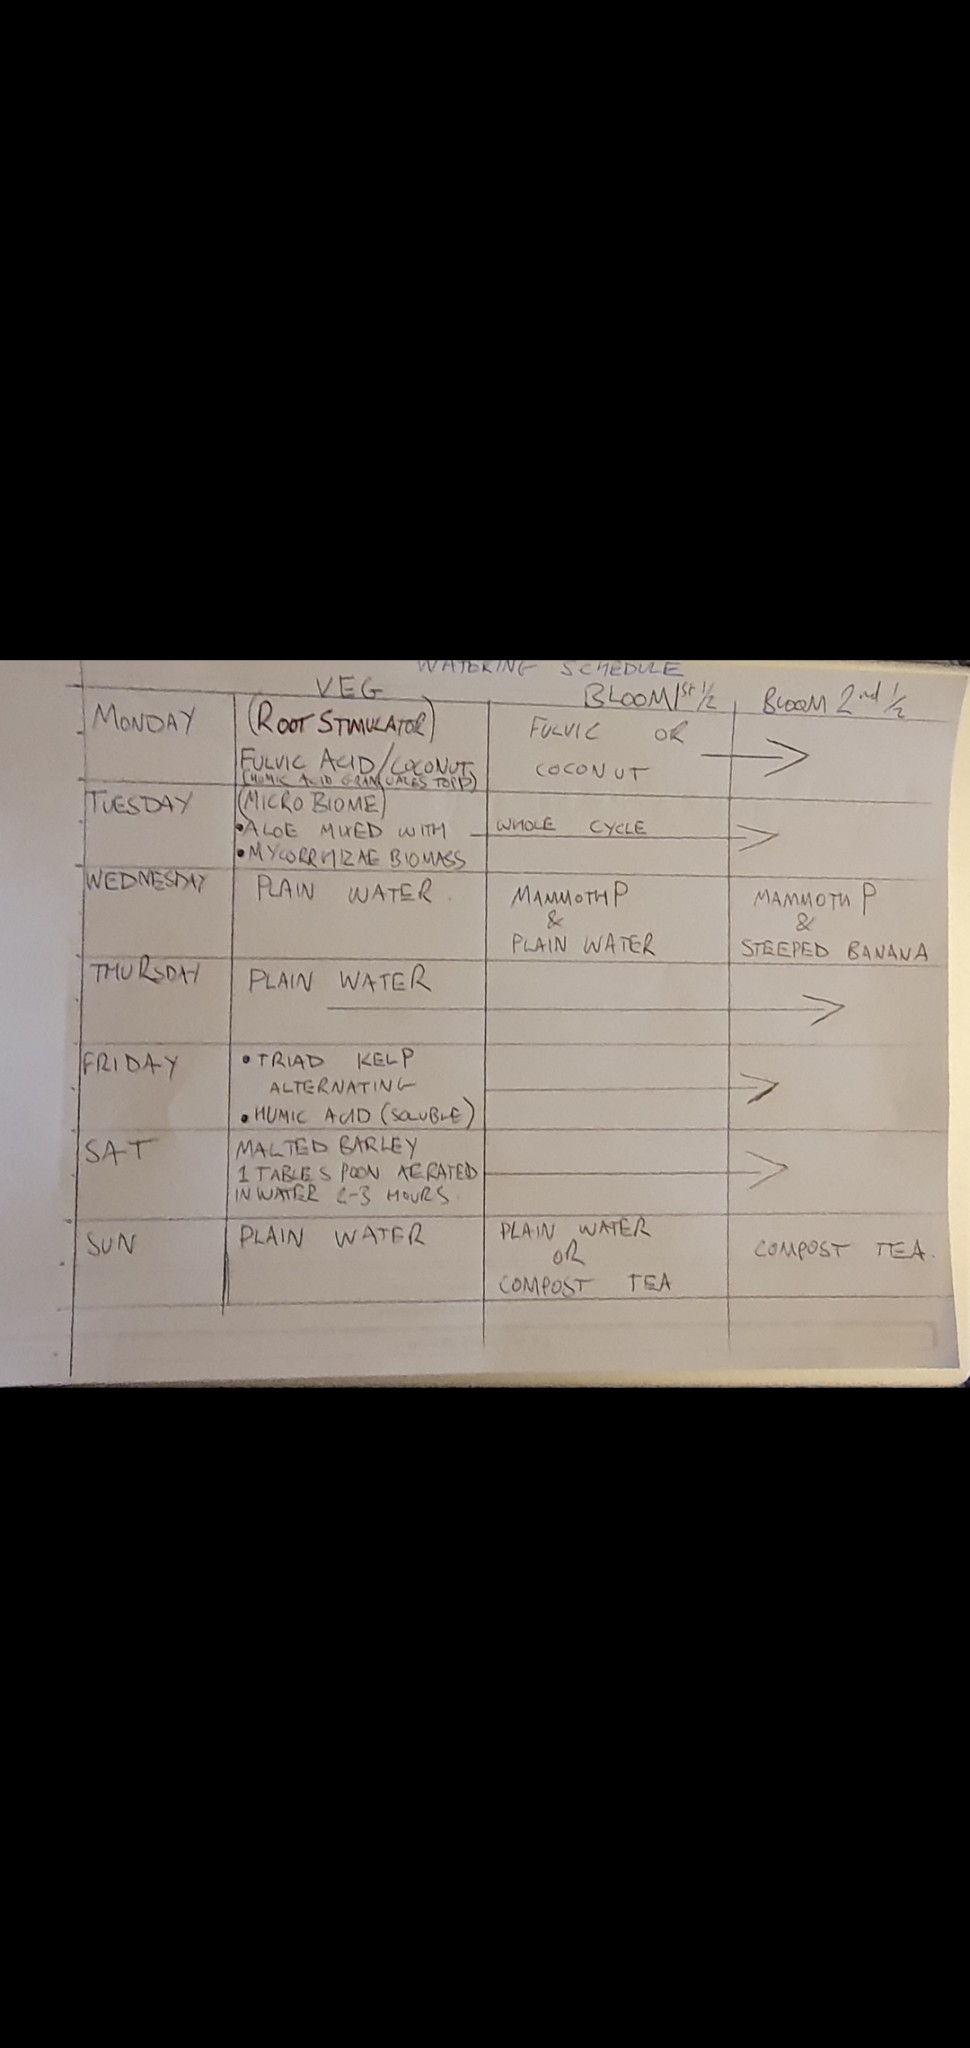 WATERING SCHEDULE
VEG BLOOM 1st 1/2 BLOOM 2nd 1/2
MONDAY
(ROOT STIMULATOR)
FULVIC ACID/COCONUT
(HUMIC ACID TOP)
FULVIC OR
COCONUT
TUESDAY
(MICRO BIOME)
•ALOE MIXED WITH
•MYCORRHIZAE BIOMASS
WHOLE CYCLE
WEDNESDAY
PLAIN WATER.
MAMMOTH P
&
PLAIN WATER
MAMMOTH P
&
STEEPED BANANA
THURSDAY
PLAIN WATER
FRIDAY
•TRIAD KELP
ALTERNATING
•HUMIC ACID (SOLUBLE)
SAT
MALTED BARLEY
1 TABLESPOON AERATED
IN WATER 2-3 HOURS.
SUN
PLAIN WATER
PLAIN WATER
OR
COMPOST TEA
COMPOST TEA.